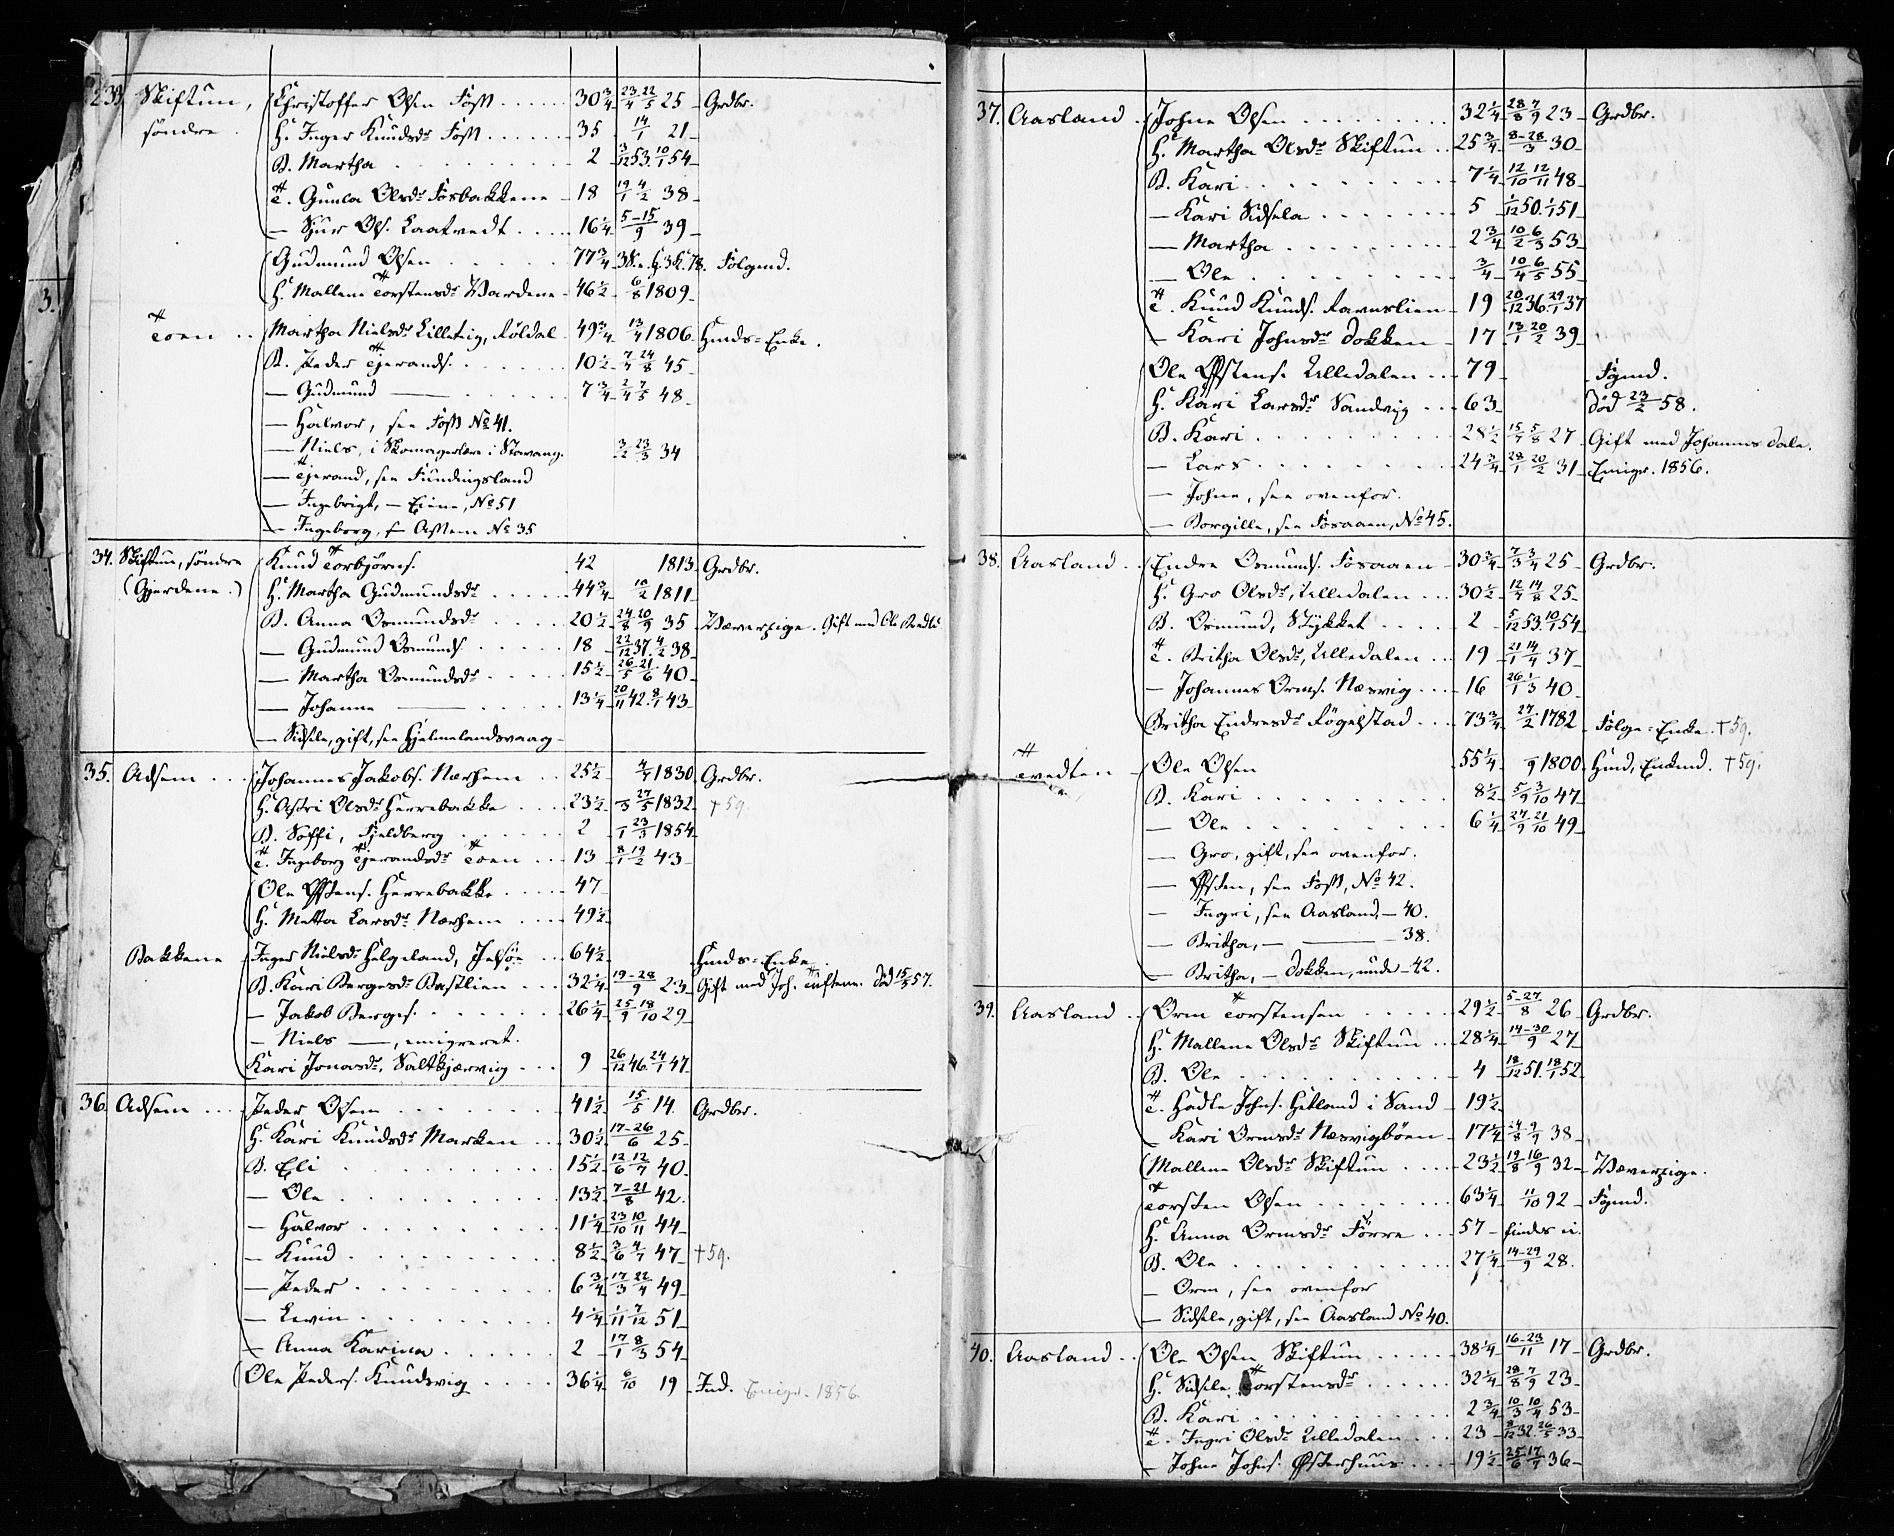 33 Skiftun, Christoffer Olsen Foss 30 3/4 23/4 22/5 25 Grdbr.
søndre. H. Inger Knudsdr Foss 35 14/1 21
B. Martha 2 3/12 53. 10/1 54
T. Gunla Olsdr Fosbakkene 18 19/1 4/2 38
— Sjur Ols. Laatvedt 16 1/4 5-15/9 39
Gudmund Olsen 77 3/4 Følgmd.
H. Mallene Torstensdr Vardene 46 1/2 6/8 1809
Toen Martha Nielsdr Lilletig, Røldal 49 3/4 13/4 1806 Huuds-Enke.
B. Peder Tjerands. 10 1/2 7/7 24/8 45
— Gudmund — 7 3/4 2/4 7/5 48
— Halvor, see Foss No 41.
— Niels, i Skomagerlære i Stavang. 3/2 23/3 34
— Tjerand, see Fundingsland
— Ingebrigt, — Eiene, No 51
— Ingeborg, f— Adsem No 35
34. Skiftun, søndre Knud Torbjørns. 42 1813 Grdbr.
(Gjerdene.) H. Martha Gudmundsdr 44 3/4 10/2 1811
B. Anna Osmundsdr 20 1/2 24/8 20/9 35 Væverpige. Gift med Ole
— Gudmund Osmunds. 18 22/12 37. 4/2 38
— Martha Osmundsdr 15 1/2 26/5 21/6 40
— Johanne — 13 1/4 20/11 42. 8/1 43
— Sidsele, gift, see Hjelmelandsvaag
35. Adsem Johannes Jakobs. Nærhem 25 1/2 4/7 1830 Grdbr.
H. Astri Olsdr Herrebakke 23 1/2 /3 27/5 1832 †59.
B. Soffi, Fjeldberg 2 /1 23/3 1854
T. Ingeborg Tjerandsdr Toen 13 8/1 19/2 43
Ole Østens. Herrebakke 47
H. Metta Larsdr Nærhem 49 1/2
Bakkene Inger Nielsdr Helgeland, Jelsøe 64 1/2 Huuds-Enke.
B. Kari Bergesdr Bastlien 32 1/4 19-28/9 23 Gift med Joh. Tuftene. Død 15/5 57.
— Jakob Berges. 26 1/4 25/9 18/10 29
— Niels —, emigreret.
Kari Jonasdr, Saltkjærvig 9 26/12 46. 24/1 47
36. Adsem Peder Olsen 41 1/2 15/5 14. Grdbr.
H. Kari Knudsdr Marken 30 1/2 17-26/6 25
B. Eli 15 1/2 12/6 12/7 40
— Ole 13 1/2 7-21/8 42.
— Halvor 11 1/4 23/10 10/11 44
— Knud 8 1/2 3/6 4/7 47 †59.
— Peder 6 3/4 17/3 22/4 49
— Levin 4 1/4 1/11 7/12 51
— Anna Karina 2 17/1 8/3 54
Ole Peders. Knudsvig 36 1/4 6/10 19 Ind. Emigr. 1856.
37. Aasland Johne Olsen 32 1/4 28/8 7/9 23 Grdbr.
H. Martha Olsdr Skiftun 25 3/4 8-28/3 30
B. Kari 7 1/4 12/10 12/11 48
— Kari Sidsela 5 1/12 50. 1/1 51
— Martha 2 3/4 10/2 6/3 53
— Ole 3/4 10/4 6/5 55
T. Knud Knuds. Ravnslien 19 20/12 36. 29/1 37
— Kari Johnsdr Dokken 17 13/1 20/2 39
Ole Østens. Ulledalen 79 Fgmd.
H. Kari Larsdr Sandvig 63 Død 23/2 58.
B. Kari 28 1/2 15/7 5/8 27 Gift med Johannes Dale.
— Lars 24 3/4 28/1 20/2 31 Emigr. 1856.
— Johne, see ovenfor.
— Borgille, see Fosaaen, No 45.
38. Aasland Endre Osmunds. Fosaaen 30 3/4 7/3 3/4 25 Grdbr.
H. Gro Olsdr, Ulledalen 30 1/2 12/7 14/8 25
B. Osmund, Stykket 2 5/12 53. 10/1 54
T. Britha Olsdr, Ulledalen 19 21/1 14/4 37
— Johannes Orms. Næsvig 16 26/1 1/3 40
Britha Endresdr Føgelstad 73 3/4 27/2 1782 Følge-Enke. †59.
Tvedten Ole Olsen 55 1/4 /9 1800 Huud, Enkmd. †59.
B. Kari 8 1/2 5/9 3/10 47
— Ole 6 1/4 27/9 21/10 49
— Gro, gift, see ovenfor.
— Østen, see Foss, No 42.
— Ingri, see Aasland, — 40.
— Britha, — — — 38.
— Britha, — Dokken, unde — 42.
39. Aasland Orm Torstensen 29 1/2 5-27/8 26 Grdbr.
H. Mallene Olsdr Skiftun 28 1/4 14-30/9 27
B. Ole 4 18/12 51. 18/1 52
T. Hadle Johns. Hetland i Sand 19 1/2
— Kari Ormsdr Næsvigbøen 17 1/4 24/8 9/9 38
Mallene Olsdr Skiftun 23 1/2 19/8 16/9 32 Væverpige.
Torsten Olsen 63 1/4 11/10 92 Fgmd.
H. Anna Ormsdr Førre 57 findes ei.
B. Ole 27 1/4 14-29/9 28.
— Orm, see ovenfor
— Sidsele, gift, see Aasland No 40.
40. Aasland Ole Olsen Skiftun 38 1/4 16-23/11 17 Grdbr.
H. Sidsele Torstensdr 32 1/4 28/8 7/9 23
B. Kari 2 3/4 10/3 10/4 53
T. Ingri Olsdr Ulledalen 23 8/12 32. 26/5 33
— Johne Johns. Østerhuus 19 1/2 25/6 17/7 36